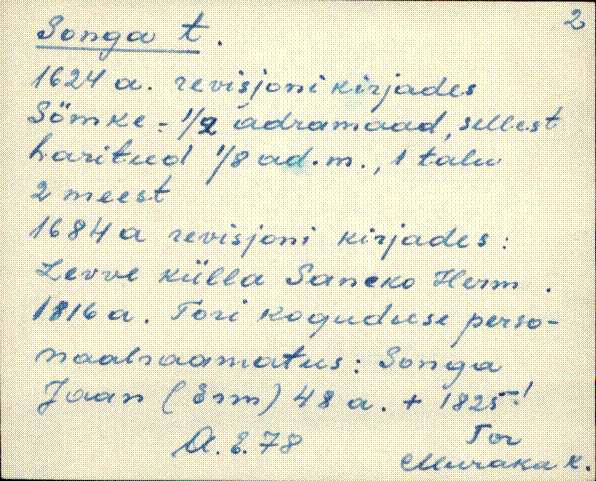 2
Songa t.
1624 a. revisjoni kirjades
Sömke = 1/2 adramaad, sellest
haritud 1/8 ad.m., 1 talu
2 meest
1684 a revisjoni kirjades:
Levve külla Sancko Herm.
1816 a. Tori koguduse perso-
naalraamatus: Songa
Jaan (Erm) 48 a. + 1825!
A.E.78
Tor
Muraka k.